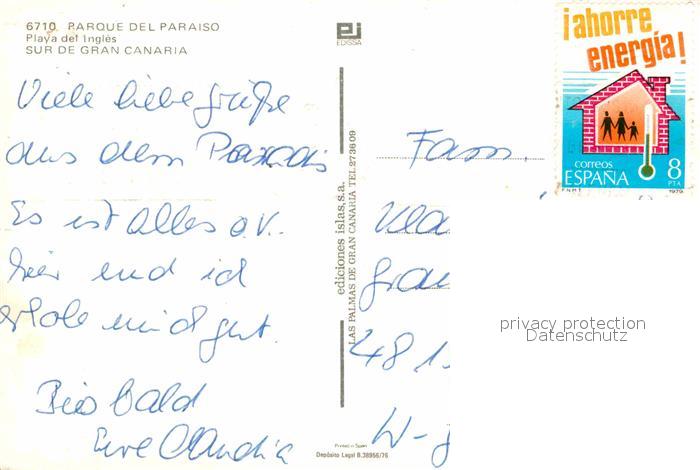 6710 PARQUE DEL PARAISO
Playa del Inglés
SUR DE GRAN CANARIA
EDISSA
Viele liebe Grüße
aus dem Paradis
Es ist alles o.k.
hier und ich
erhole mich gut.
Bis bald
Eure Claudia
ediciones islas, s.a.
LAS PALMAS DE GRAN CANARIA TEL. 273609
Printed in Spain
Depósito Legal B.38956/76
¡ahorre
energía!
correos
ESPAÑA 8
PTA
F.N.M.T. 1979
Fam.
48 1
W-
privacy protection
Datenschutz